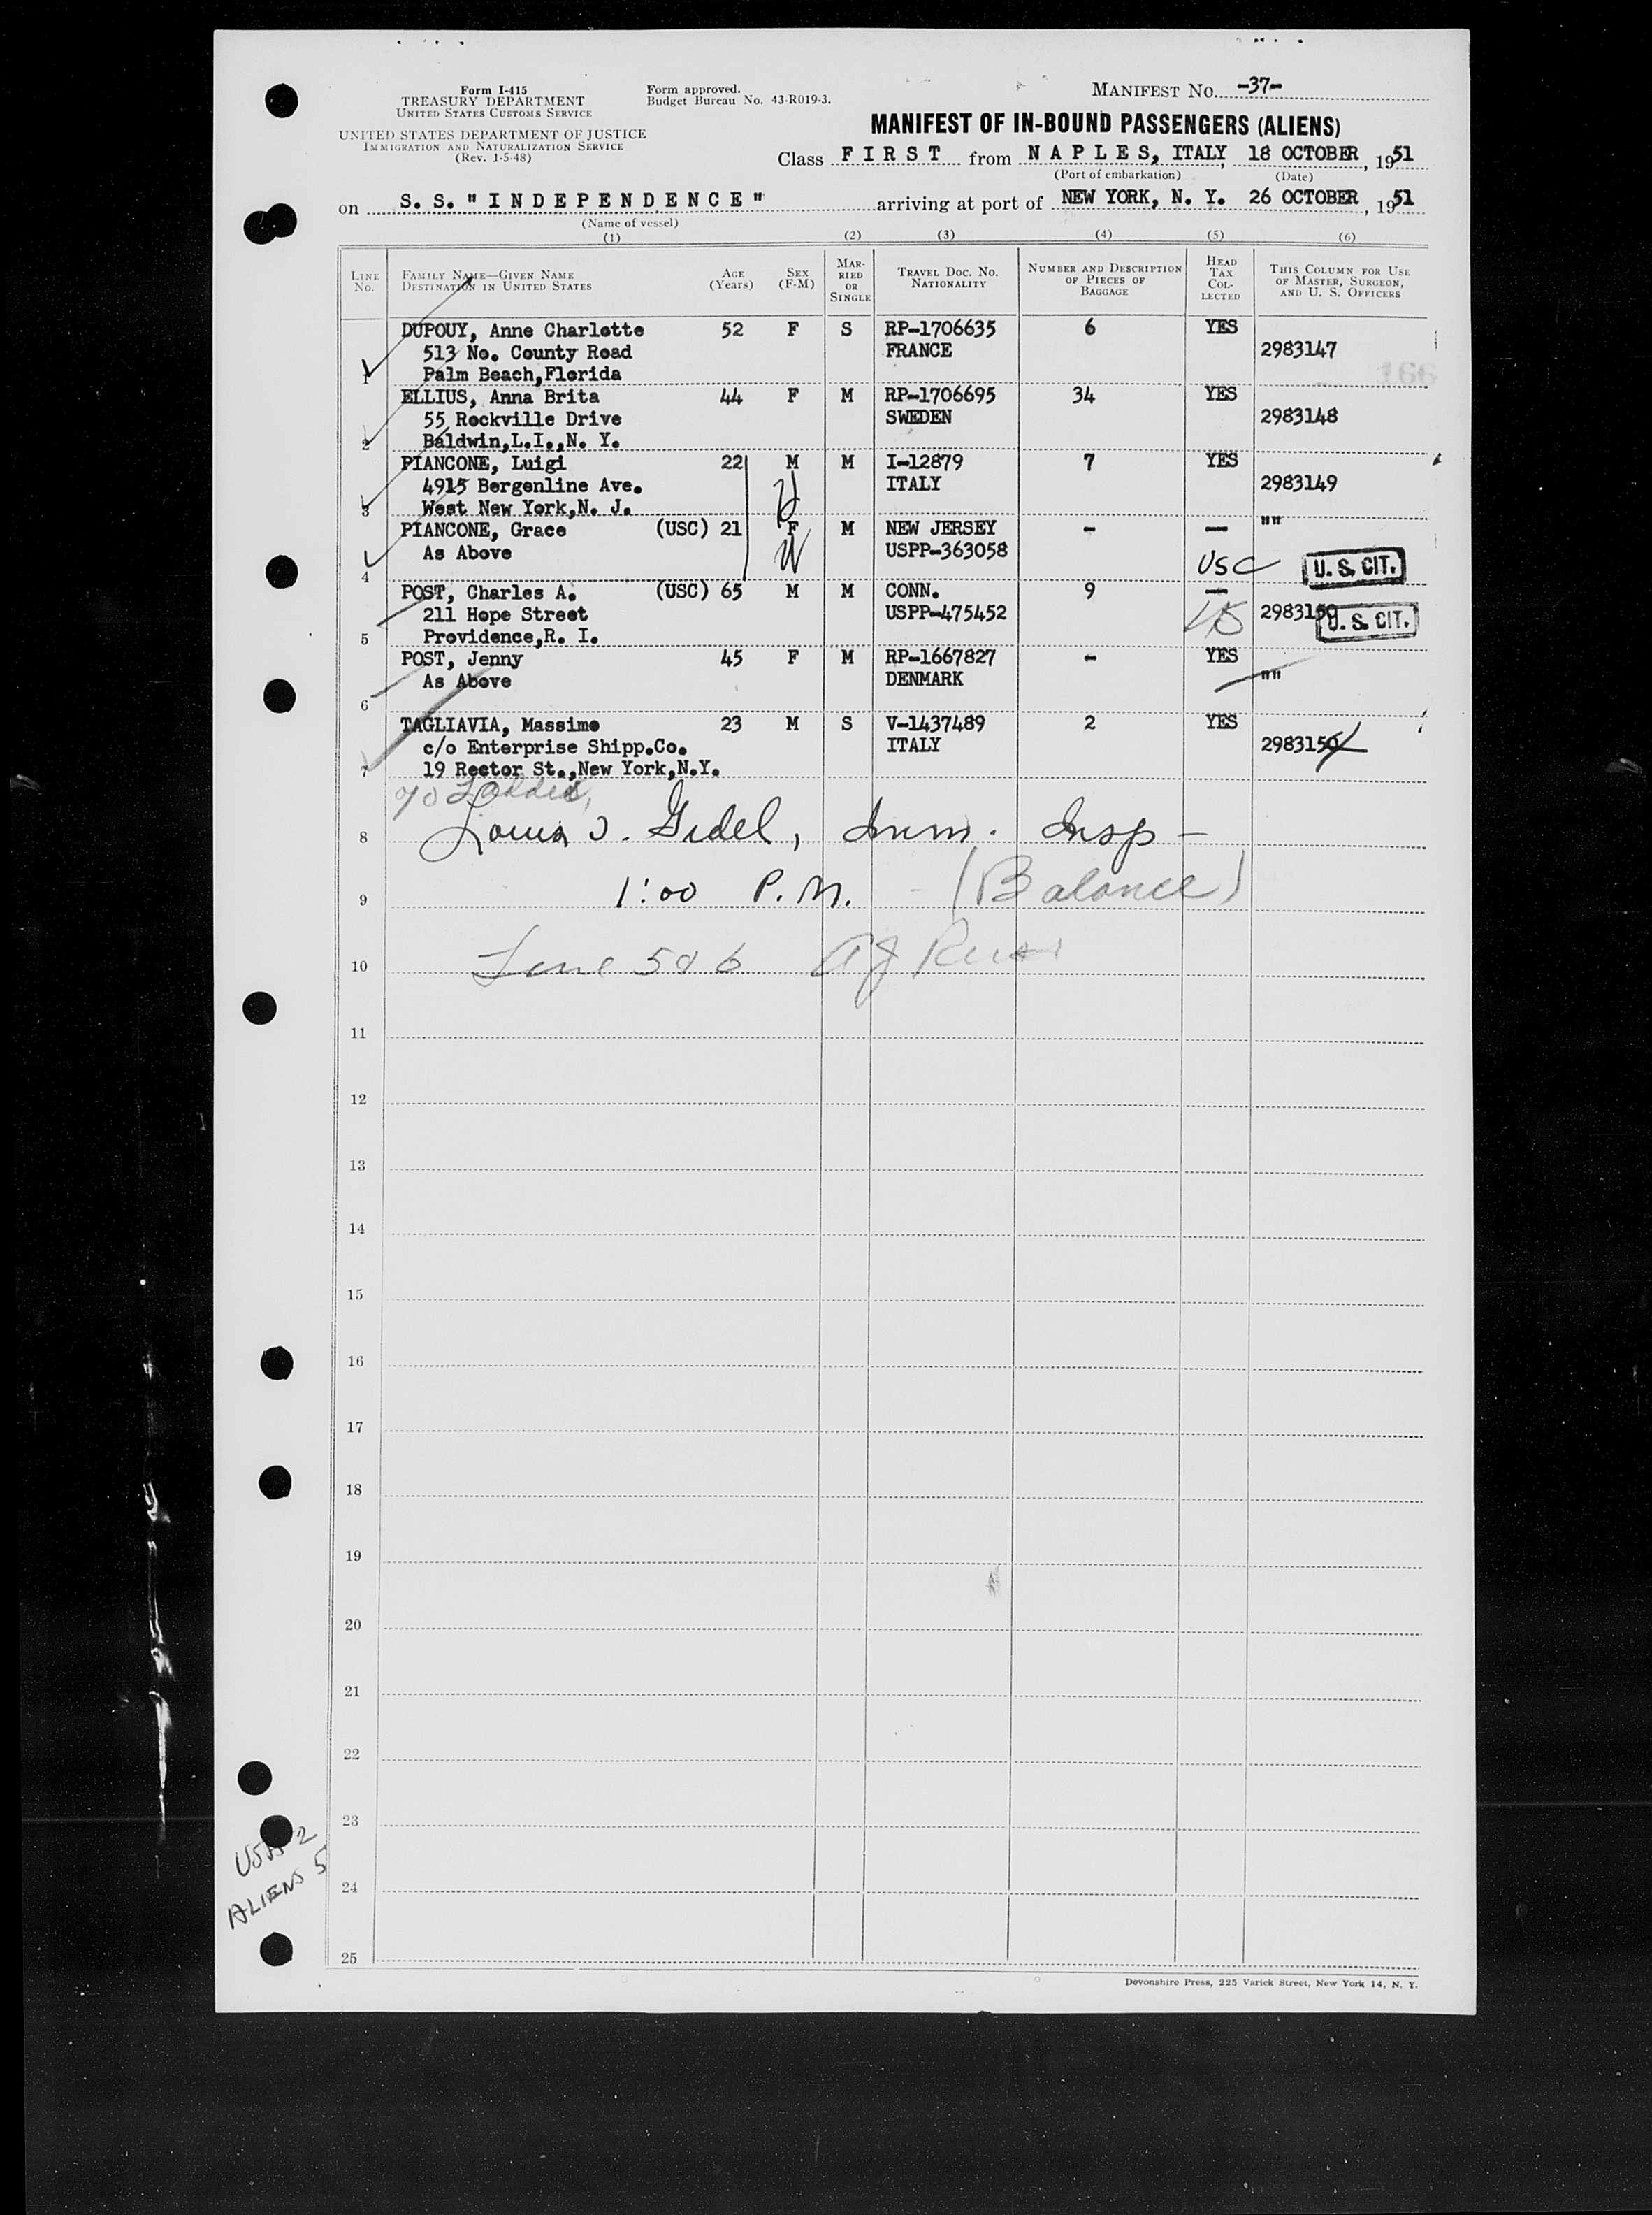 Form I-415
TREASURY DEPARTMENT
UNITED STATES CUSTOMS SERVICE
UNITED STATES DEPARTMENT OF JUSTICE
IMMIGRATION AND NATURALIZATION SERVICE
(Rev. 1-5-48)
Form approved.
Budget Bureau No. 43-R019-3.
MANIFEST NO. -37-
MANIFEST OF IN-BOUND PASSENGERS (ALIENS)
Class FIRST from NAPLES, ITALY, 18 OCTOBER, 1951
(Port of embarkation) (Date)
on S.S. "INDEPENDENCE" arriving at port of NEW YORK, N. Y. 26 OCTOBER, 1951
(Name of vessel)
(1) (2) (3) (4) (5) (6)
LINE NO. FAMILY NAME—GIVEN NAME DESTINATION IN UNITED STATES AGE (Years) SEX (F-M) MARRIED OR SINGLE TRAVEL DOC. NO. NATIONALITY NUMBER AND DESCRIPTION OF PIECES OF BAGGAGE HEAD TAX COLLECTED THIS COLUMN FOR USE OF MASTER, SURGEON, AND U. S. OFFICERS
DUPOUY, Anne Charlotte 52 F S RP-1706635 6 YES
513 No. County Road FRANCE 2983147
1 Palm Beach,Florida
166
ELLIUS, Anna Brita 44 F M RP-1706695 34 YES
55 Rockville Drive SWEDEN 2983148
2 Baldwin,L.I.,N. Y.
PIANCONE, Luigi 22 M M I-12879 7 YES
4915 Bergenline Ave. ITALY 2983149
3 West New York,N. J.
PIANCONE, Grace (USC) 21 F M NEW JERSEY - — ""
As Above USPP-363058
4 USC U. S. CIT.
POST, Charles A. (USC) 65 M M CONN. 9 —
211 Hope Street USPP-475452 2983150 U. S. CIT.
5 Providence,R. I.
POST, Jenny 45 F M RP-1667827 - YES
As Above DENMARK ""
6
TAGLIAVIA, Massimo 23 M S V-1437489 2 YES
c/o Enterprise Shipp.Co. ITALY 298315
7 19 Rector St.,New York,N.Y.
8 Louis J. Gidel, Imm. Insp -
9 1:00 P.M. (Balance)
10 Line 5 & 6
11
12
13
14
15
16
17
18
19
20
21
22
23
24
25
USC 2
ALIENS 5
Devonshire Press, 225 Varick Street, New York 14, N. Y.